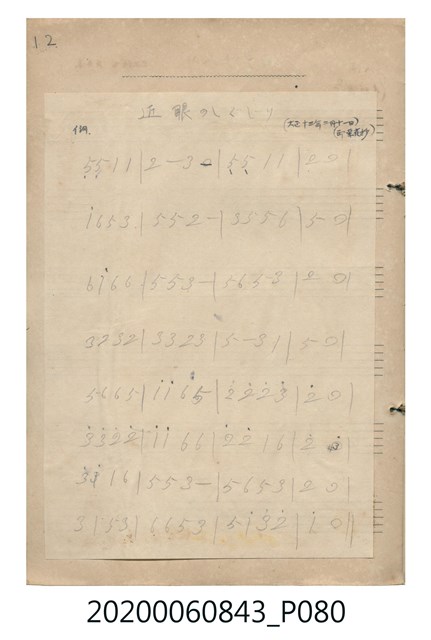 12
近眼のしくじり
(大正十三年二月十一日)
5511|2-30|5511|20
1653|552-|3556|50
6166|553-|5653|20
3232|3323|5-31|50
5665|1165|2223|20
3322|1166|2216|20
3116|553-|5653|20
3153|6653|5132|10||
20200060843_P080